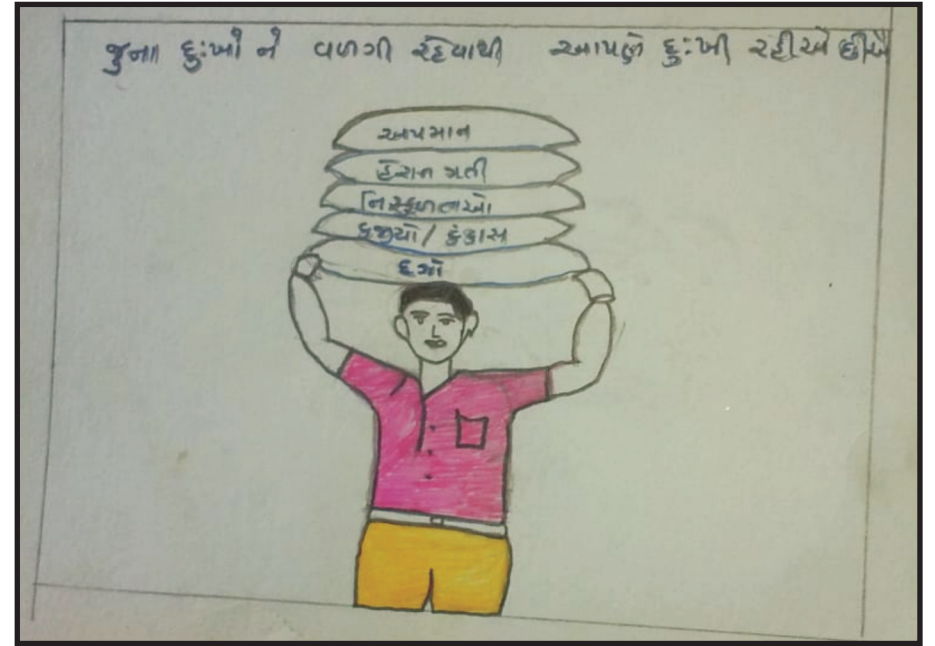 જુના દુઃખો ને વળગી રહેવાથી આપણે દુઃખી રહીએ છીએ
અપમાન
હેરાન ગતી
નિસ્ફળતાઓ
કજીયો / કંકાસ
દગો